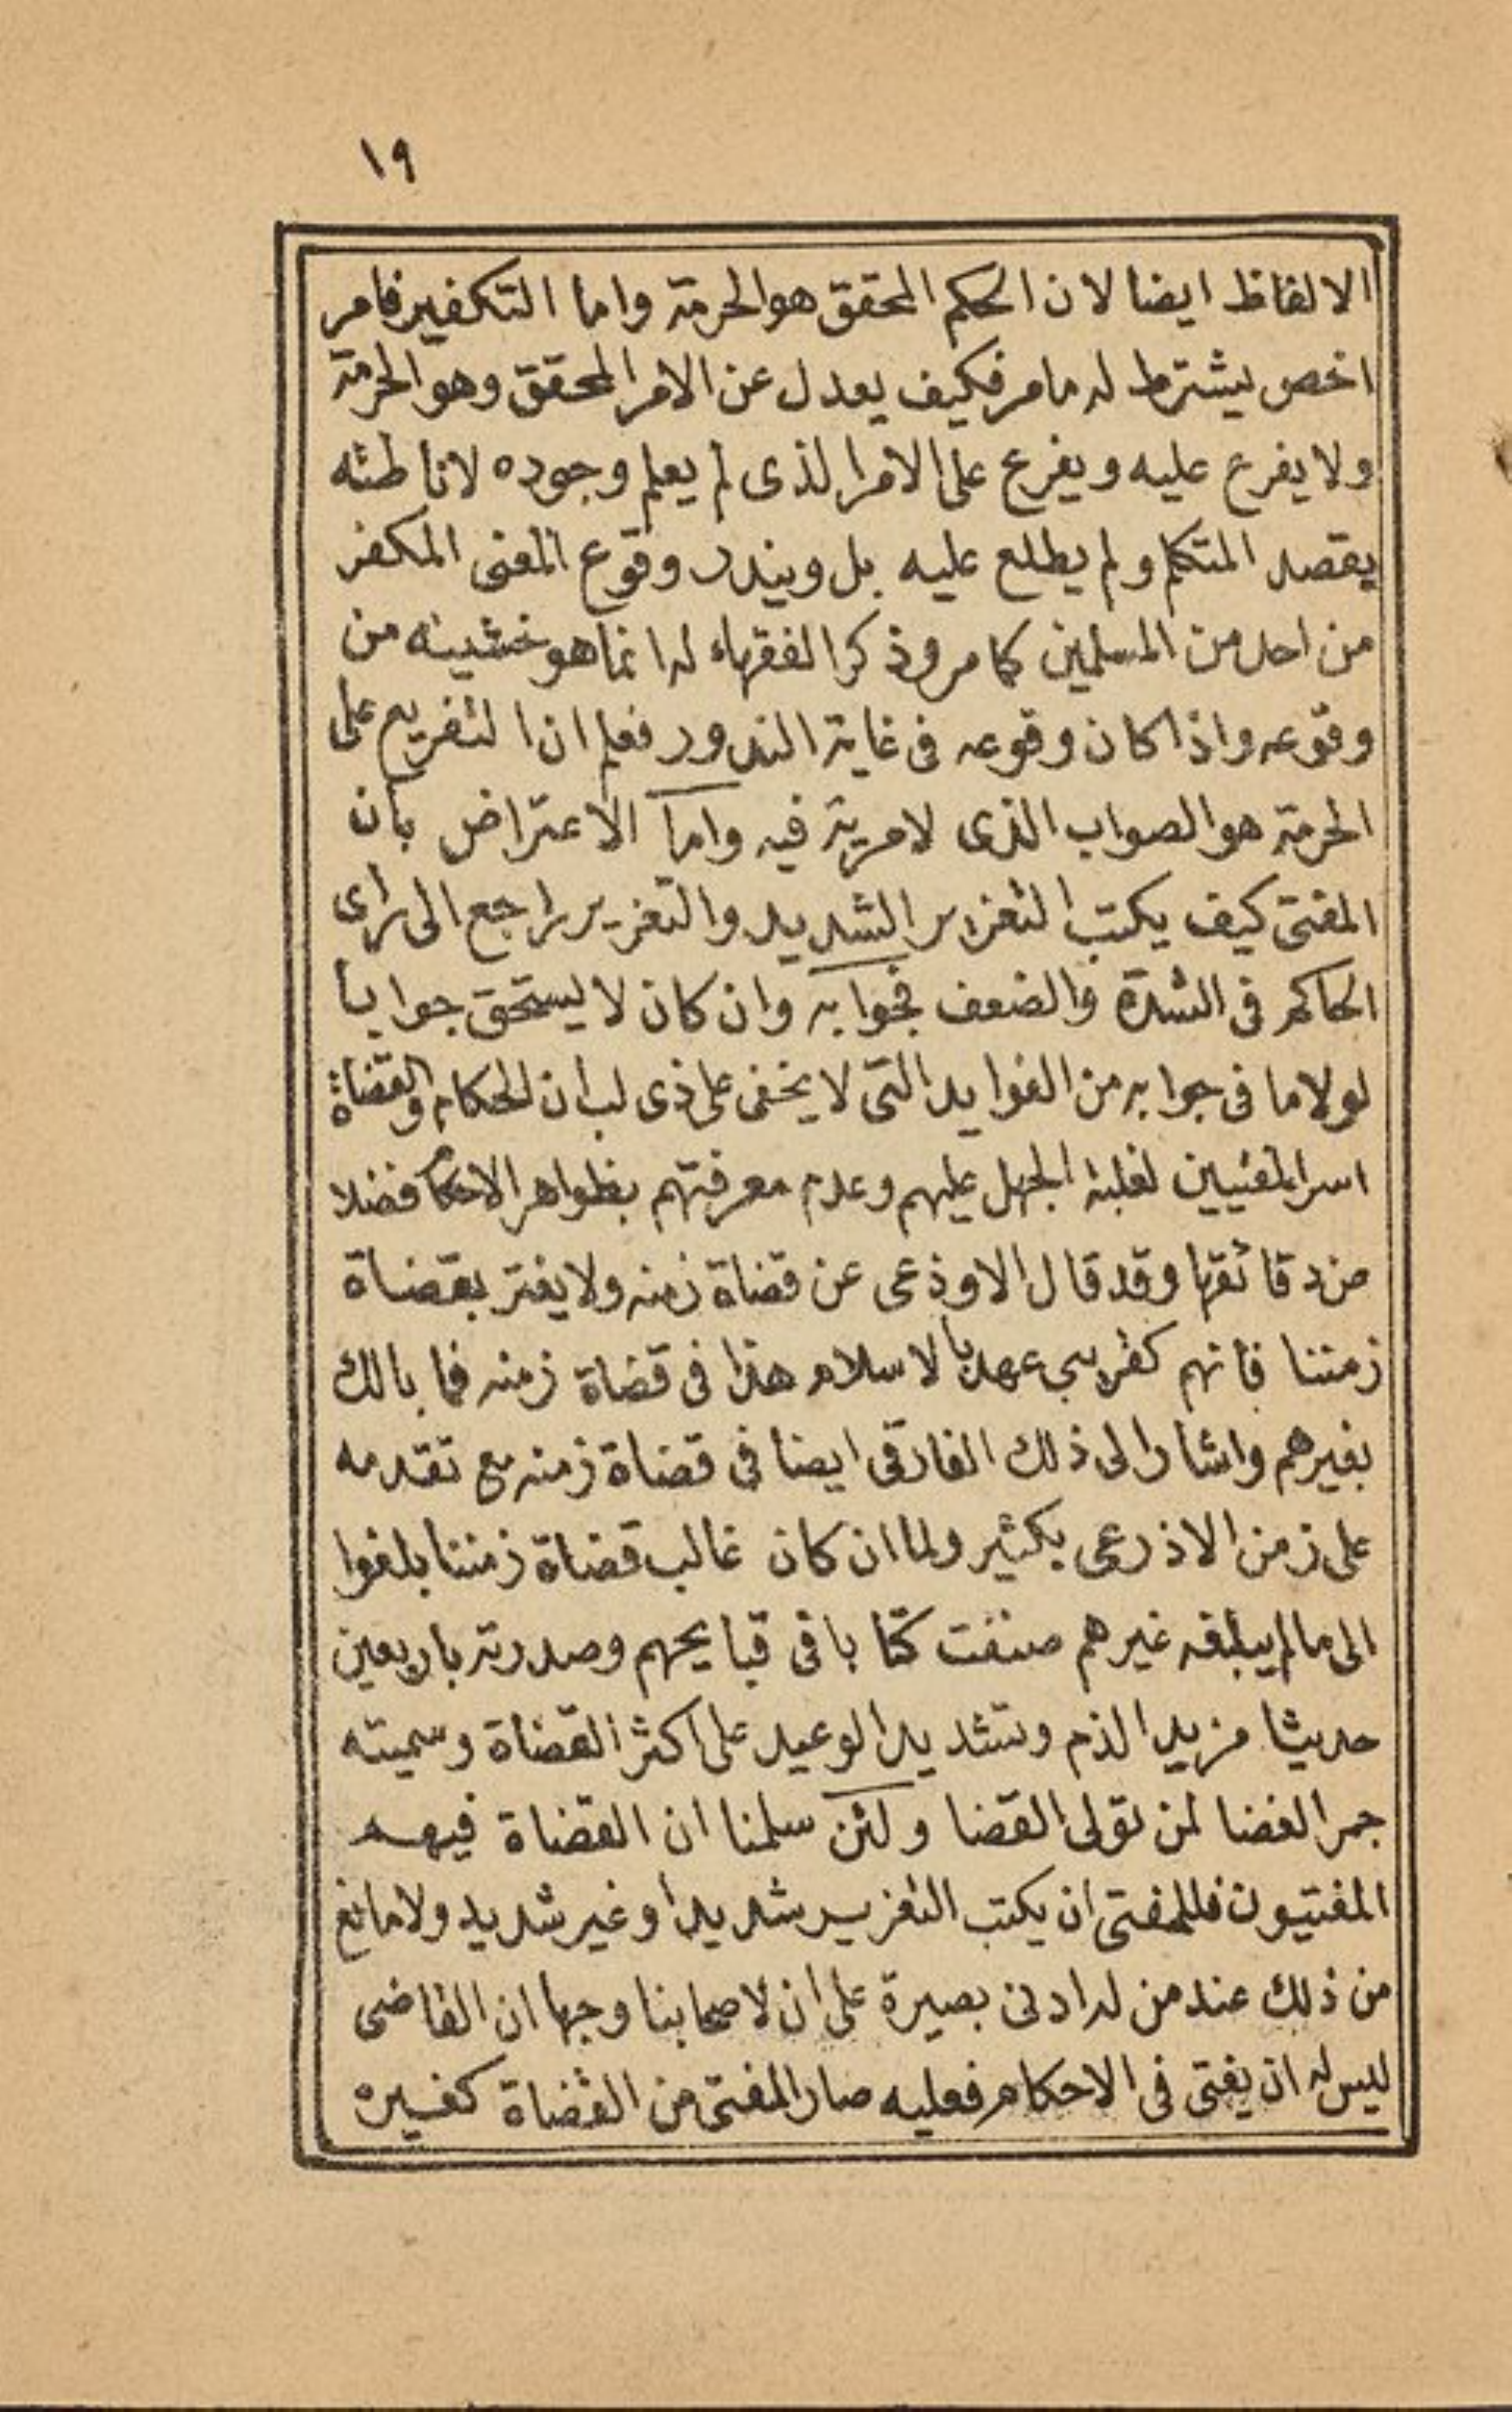 ١٩
الالفاظ ايضا لان الحكم المحقق هو الحرمة واما التكفير فامر
اخص يشترط له مامر فكيف يعدل عن الامر المحقق وهو الحرمة
ولا يفرع عليه ويفرع على الامر الذى لم يعلم وجوده لاناطته
يقصد المتكلم ولم يطلع عليه بل ويندر وقوع المعنى المكفر
من احد من المسلمين كما مر وذكر الفقهاء له انما هو خشيته من
وقوعه واذا كان وقوعه فى غاية الندور فعلم ان التفريع على
الحرمة هو الصواب الذى لا مرية فيه واما الاعتراض بأن
المفتى كيف يكتب التعزير الشديد والتعزير راجع الى راى
الحاكم فى الشدة والضعف فجوابه وان كان لا يستحق جوابا
لولا ما فى جوابه من الفوايد التى لا يخفى على ذى لب ان الحكام والقضاة
اسر المفتيين لغلبة الجهل عليهم وعدم معرفتهم بظواهر الاحكام فضلا
من دقائقها وقد قال الاوذعى عن قضاة زمنه ولا يغتر بقضاة
زمننا فانهم كقريبى عهد بالاسلام هذا فى قضاة زمنه فما بالك
بغيرهم واشار الى ذلك الفارقى ايضا فى قضاة زمنه مع تقدمه
على زمن الاذرعى بكثير ولما ان كان غالب قضاة زمننا بلغوا
الى ما لم يبلغه غيرهم صنفت كتابا فى قبايحهم وصدرته باربعين
حديثا مزيد الذم وتشديد الوعيد على اكثر القضاة وسميته
جمر الغضا لمن تولى القضا ولئن سلمنا ان القضاة فيهم
المفتيون فللمفتى ان يكتب التعزير شديدا وغير شديد ولا مانع
من ذلك عند من له ادنى بصيرة على ان لاصحابنا وجها ان القاضى
ليس له ان يفتى فى الاحكام فعليه صار المفتى من القضاة كغيره